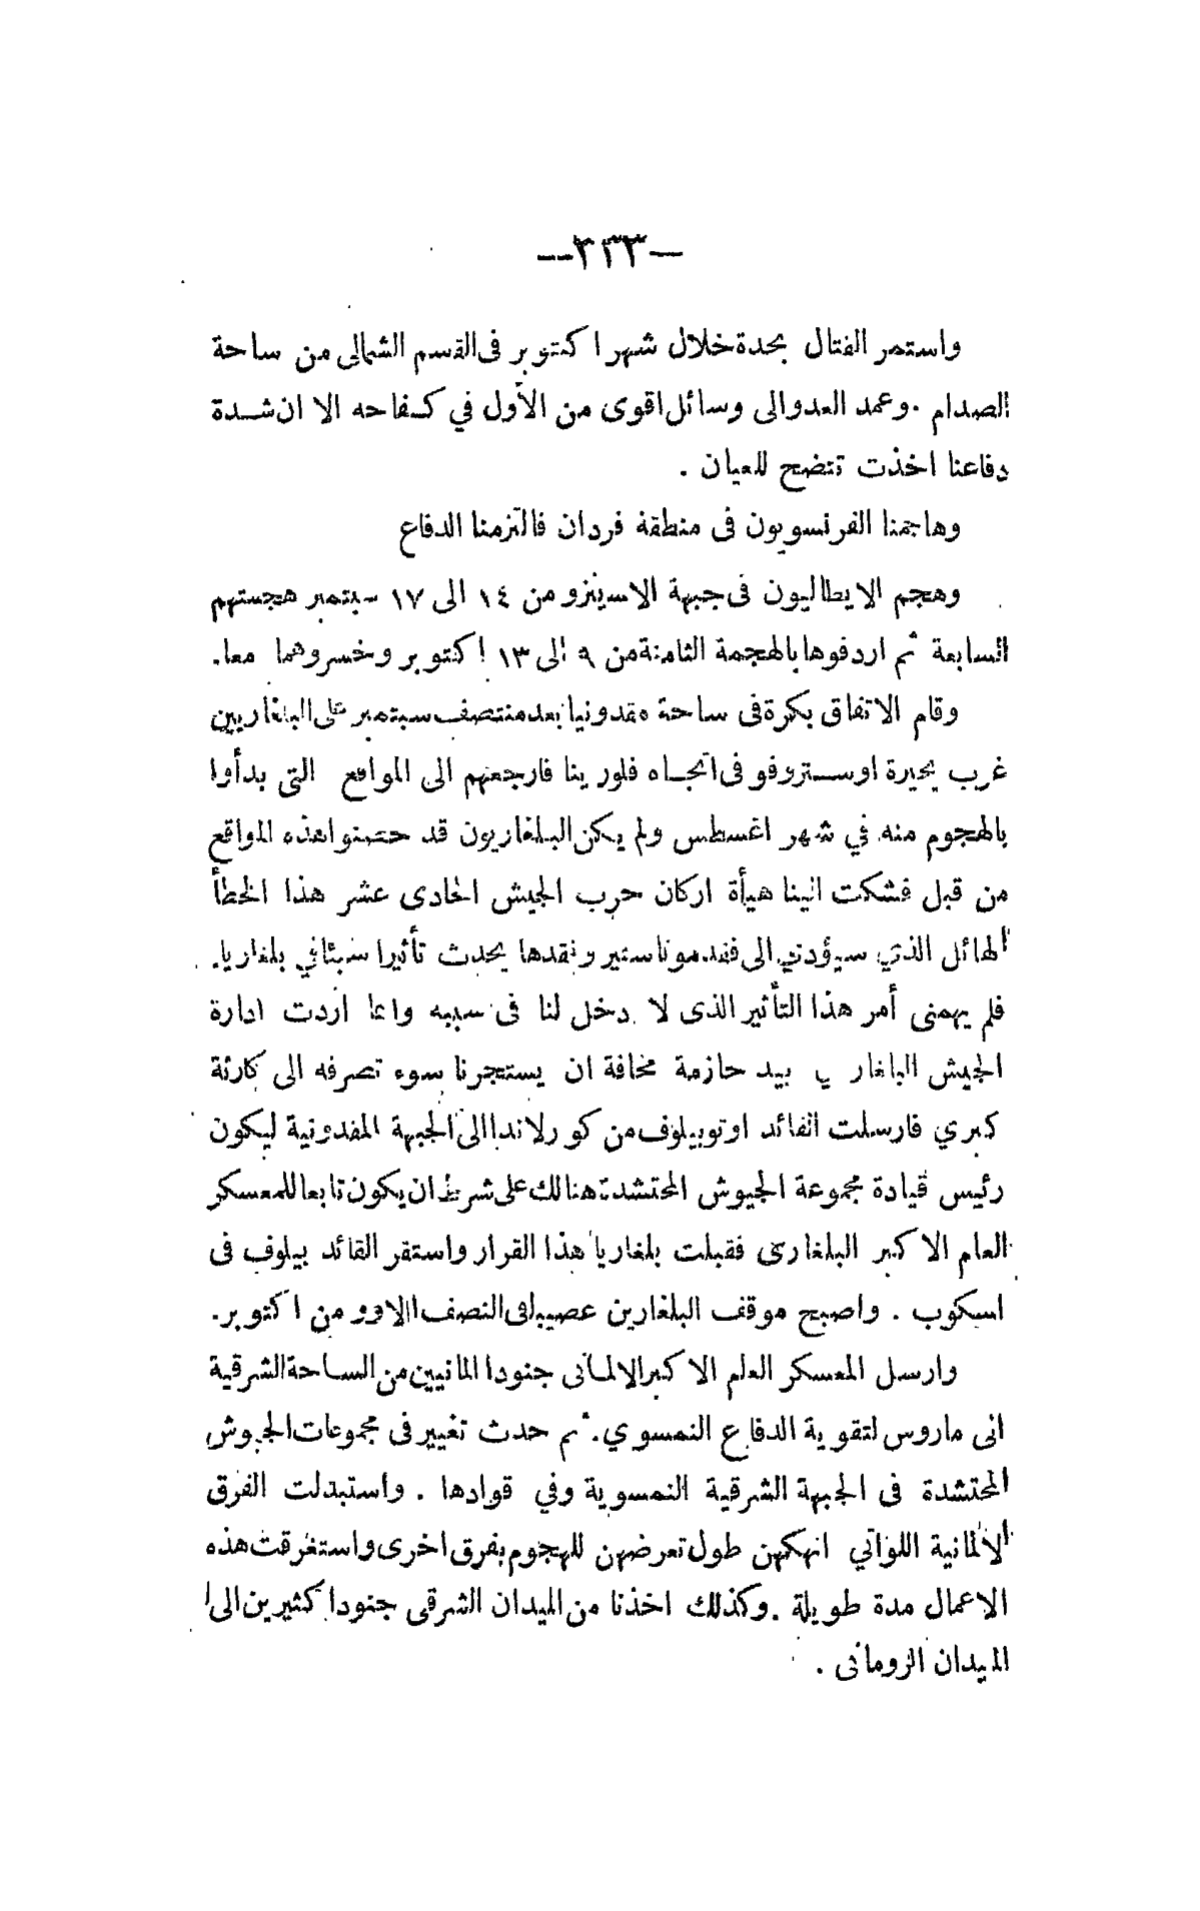 —٣٣٣—
واستمر القتال بحدة خلال شهر اكتوبر فى القسم الشمالى من ساحة
الصدام . وعمد العدو الى وسائل اقوى من الأول في كفاحه الا ان شدة
دفاعنا اخذت تتضح للعيان .
وهاجمنا الفرنسويون فى منطقة فردان فالتزمنا الدفاع
وهجم الايطاليون فى جبهة الاسينزو من ١٤ الى ١٧ سبتمبر هجمتهم
السابعة ثم اردفوها بالهجمة الثامنة من ٩ الى ١٣ اكتوبر وخسروهما معا.
وقام الاتفاق بكرة فى ساحة مقدونيا بعد منتصف سبتمبر على البلغاريين
غرب بحيرة اوستروفو فى اتجاه فلورينا فارجعهم الى المواقع التى بدأوا
بالهجوم منه في شهر اغسطس ولم يكن البلغاريون قد حصنوا هذه المواقع
من قبل فشكت الينا هيأة اركان حرب الجيش الحادى عشر هذا الخطأ
الهائل الذي سيؤدي الى فقد موناستير وفقدها يحدث تأثيرا سيئا في بلغاريا.
فلم يهمنى أمر هذا التأثير الذى لا دخل لنا فى سببه وانما اردت ادارة
الجيش البلغاري بيد حازمة مخافة ان يستجرنا سوء تصرفه الى كارثة
كبري فارسلت القائد اوتوبيلوف من كورلاندا الى الجبهة المقدونية ليكون
رئيس قيادة مجموعة الجيوش المحتشدة هنالك على شرط ان يكون تابعا للمعسكر
العام الاكبر البلغارى فقبلت بلغاريا هذا القرار واستقر القائد بيلوف فى
اسكوب . واصبح موقف البلغارين عصيبا فى النصف الاو من اكتوبر.
وارسل المعسكر العام الاكبر الالمانى جنودا المانيين من الساحة الشرقية
الى ماروس لتقوية الدفاع النمسوي . ثم حدث تغيير فى مجموعات الجيوش
المحتشدة فى الجبهة الشرقية النمسوية وفي قوادها . واستبدلت الفرق
الالمانية اللواتي انهكهن طول تعرضهن للهجوم بفرق اخرى واستغرقت هذه
الاعمال مدة طويلة . وكذلك اخذنا من الميدان الشرقى جنودا كثيرين الى
الميدان الرومانى .